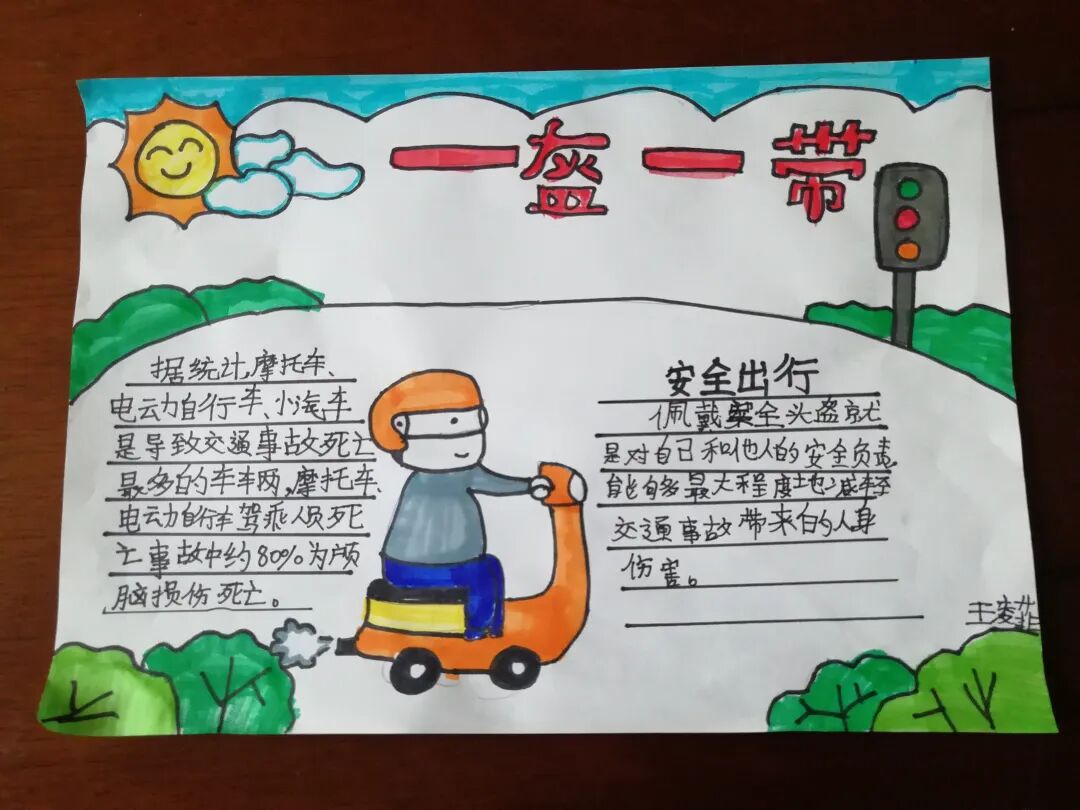 一盔一带
据统计,摩托车、
电动自行车、小汽车
是导致交通事故死亡
最多的车车两,摩托车、
电动自行车驾乘人员死
亡事故中约80%为颅
脑损伤死亡。
安全出行
佩戴安全头盔就
是对自己和他人的安全负责,
能够最大程度地减轻
交通事故带来的人身
伤害。
王凌菲